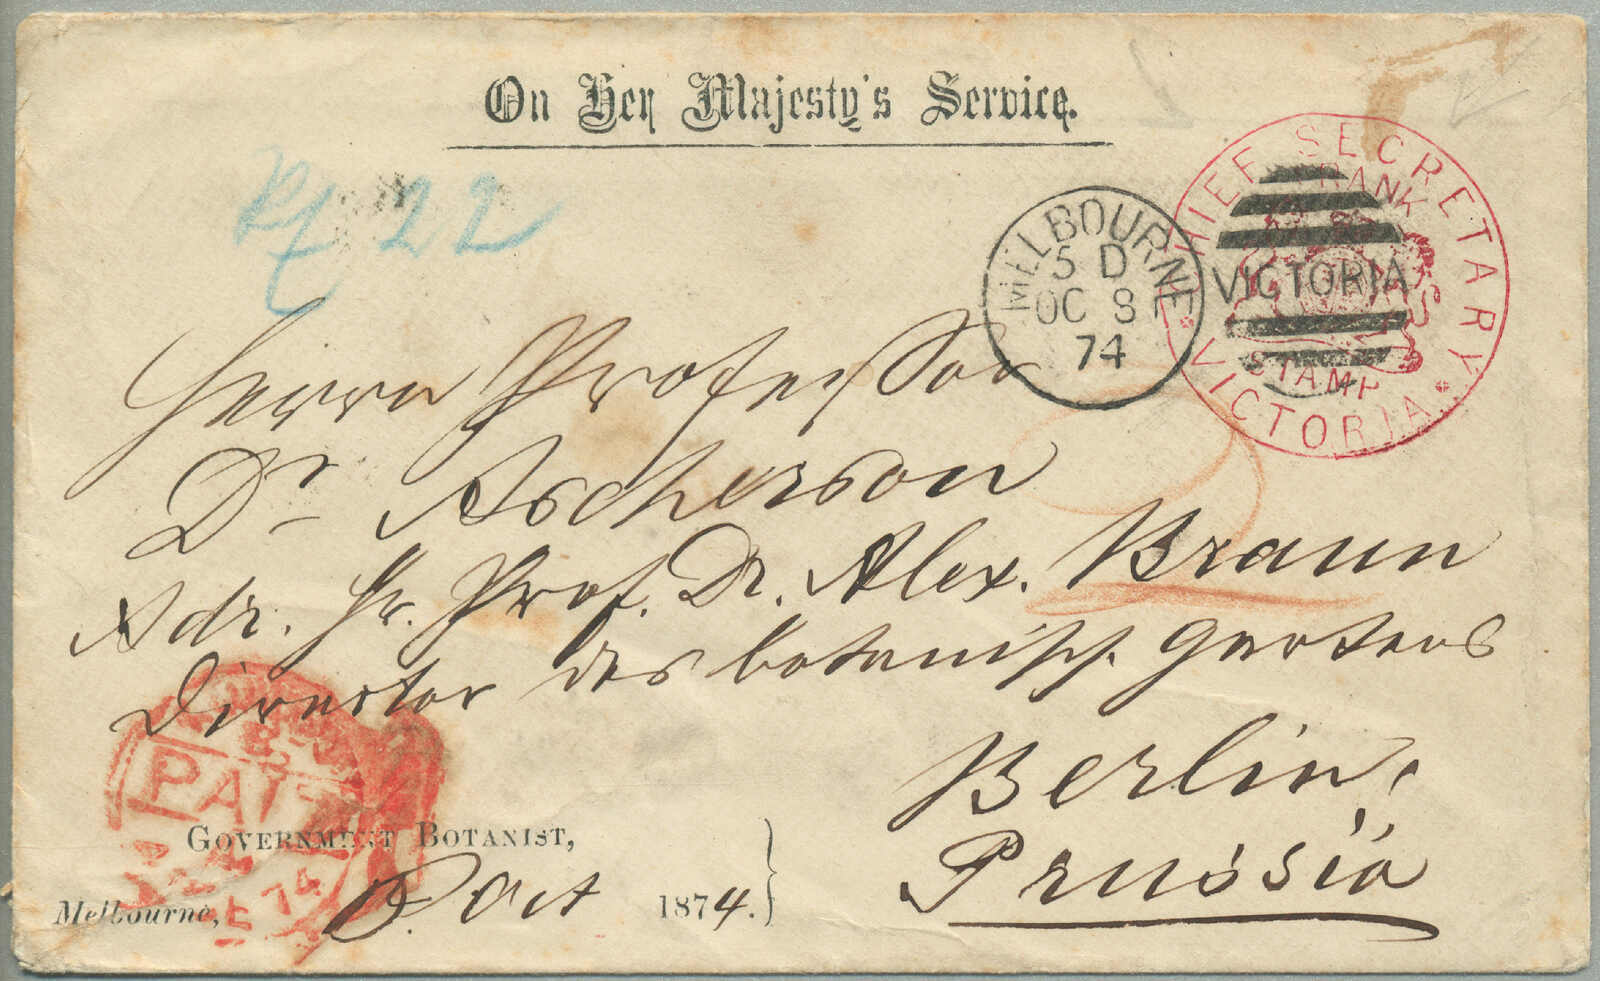 On Her Majesty's Service.
CHIEF SECRETARY
FRANK
STAMP
VICTORIA
MELBOURNE
5 D
OC 8
74
VICTORIA
22
Herrn Professor
Dr Ascherson
Adr. Hr. Prof. Dr. Alex. Braun
Director des botanisch. Gartens
Berlin,
Prussia
PAID
74
GOVERNMENT BOTANIST,
Melbourne, Oct 1874.